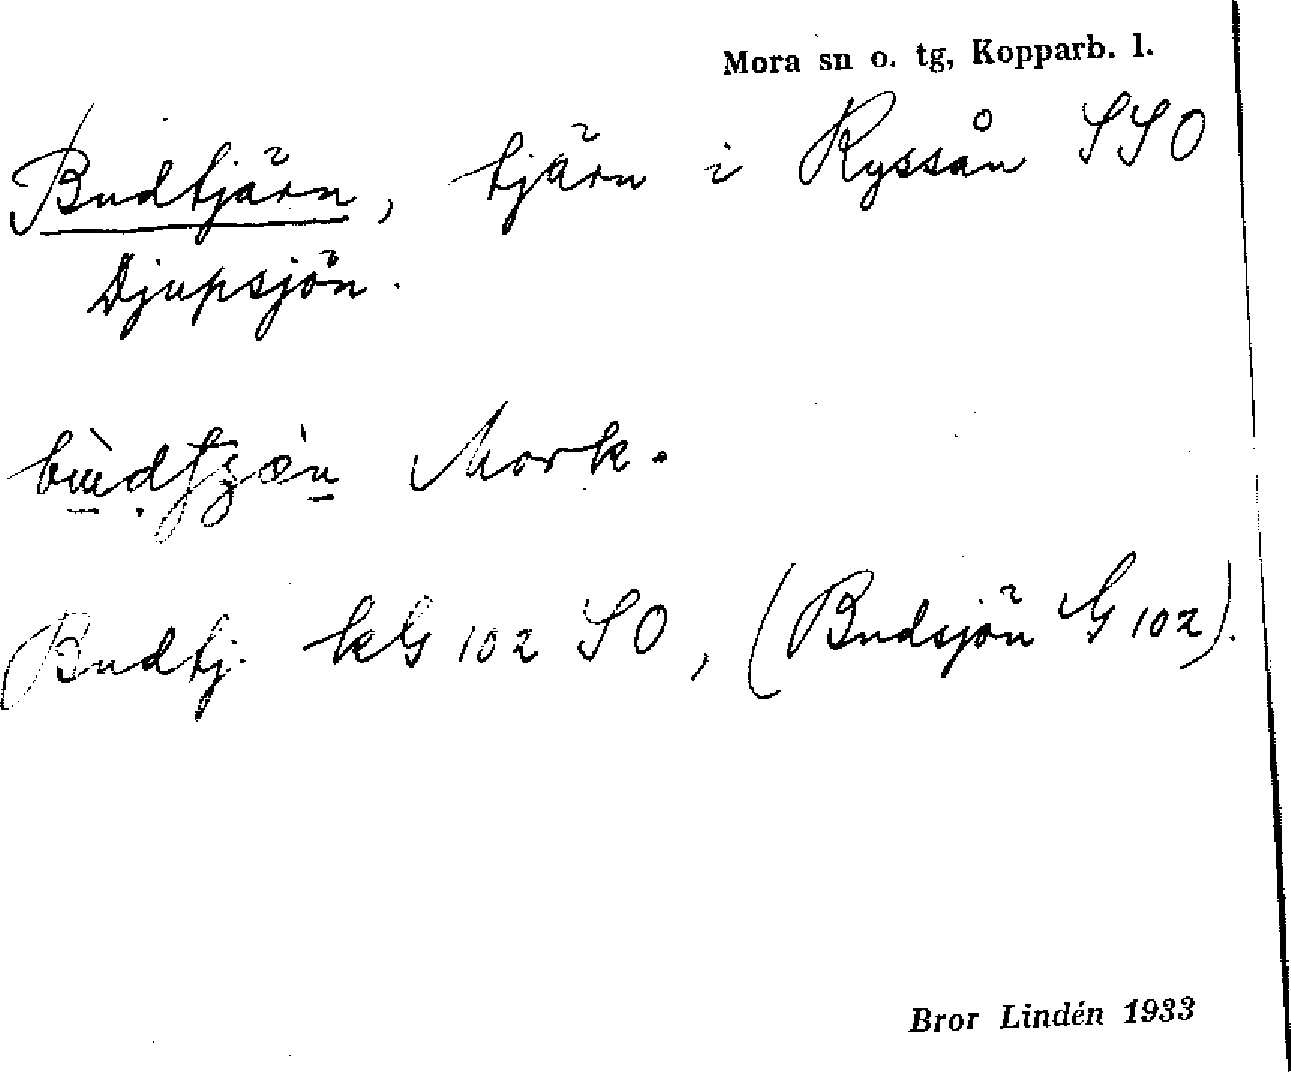 Mora sn o. tg, Kopparb. l.
Budtjärn, tjärn i Ryssån SSO
Djupsjön.
Mork.
Budtj. kG 102 SO, (Budsjön G 102).
Bror Lindén 1933